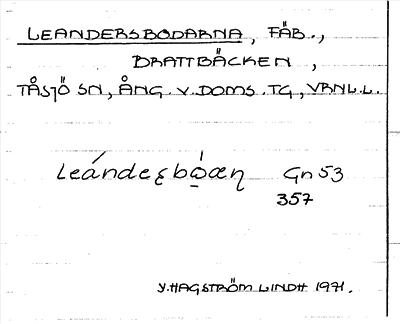 LEANDERSBODARNA, FÄB.,
BRATTBÄCKEN,
TÅSJÖ SN, ÅNG. V. DOMS. TG, VRNL.L.
Leándeʂbo̱̍æɳ Gn 53
357
Y. HAGSTRÖM LINDH 1971.